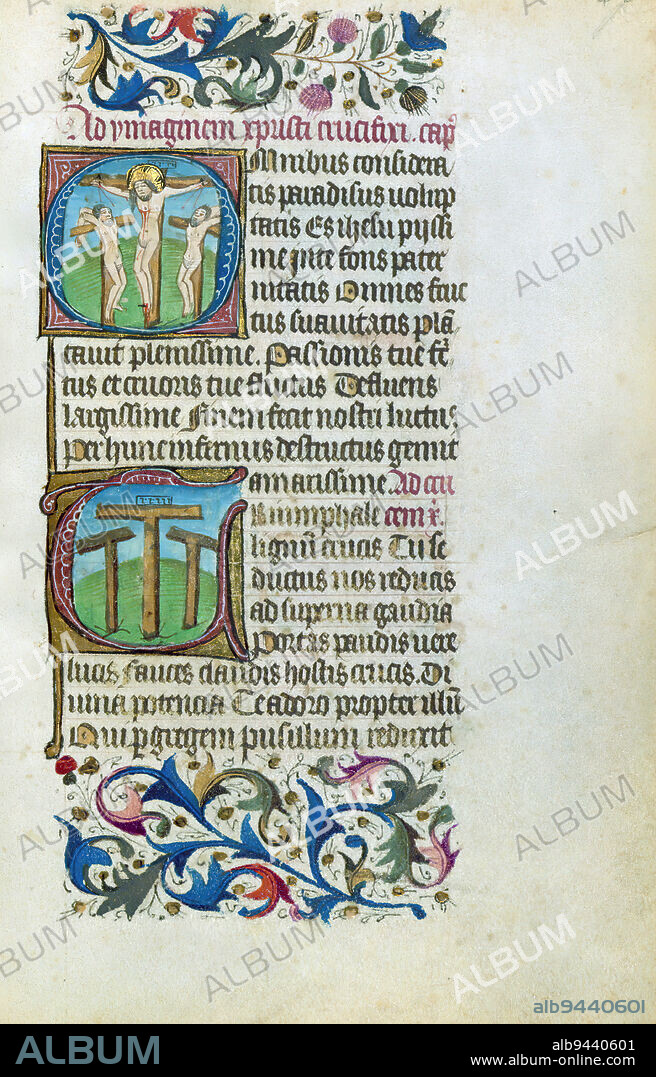 Ad ymaginem xpristi crucifixi. cap^m
Omnibus considera
tis paradisus volup
tatis Es ihesu pyssi
me vite fons pater
nitatis Omnes fruc
tus suavitatis plā
tavit plenissime. Passionis tue
tus et cruoris tue fluctus Defluens
largissime Finem fecit nostri luctus
Per hunc infernus destructus gemit
amarissime. Ad cru
Triumphale cem x̄.
lignū crucis Tu se
ductus nos reducis
ad superna gaudia
Portas pandis vere
lucis fauces claudis hostis crucis. Di
vina potencia Te adoro propter illū
Qui p gregem pusillum reduxit
alb9440601
ALBUM
alb9440601
www.album-online.com